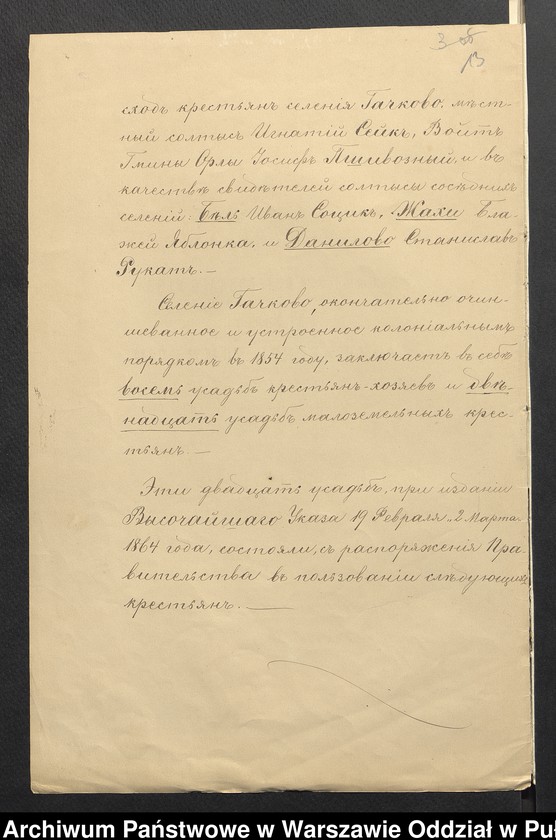 3 об
13
сходъ крестьянъ селенія Гачково, мѣст-
ный солтысъ Игнатій Сейкъ, Войтъ
Гмины Орлы Іосифъ Пшивозный, и въ
качествѣ свидѣтелей солтысы сосѣднихъ
селеній: Бѣль Иванъ Социкъ, Жахи Бла-
жей Яблонка, и Данилово Станиславъ
Рукатъ. —
Селеніе Гачково, окончательно очин-
шеванное и устроенное колоніальнымъ
порядкомъ въ 1854 году, заключаетъ въ себѣ
восемь усадьбъ крестьянъ-хозяевъ и двѣ-
надцать усадьбъ малоземельныхъ крес-
тьянъ. —
Эти двадцать усадьбъ, при изданіи
Высочайшаго Указа 19 Февраля - 2 Марта
1864 года, состояли, съ распоряженія Пра-
вительства въ пользованіи слѣдующихъ
крестьянъ. —
Archiwum Państwowe w Warszawie Oddział w Pu